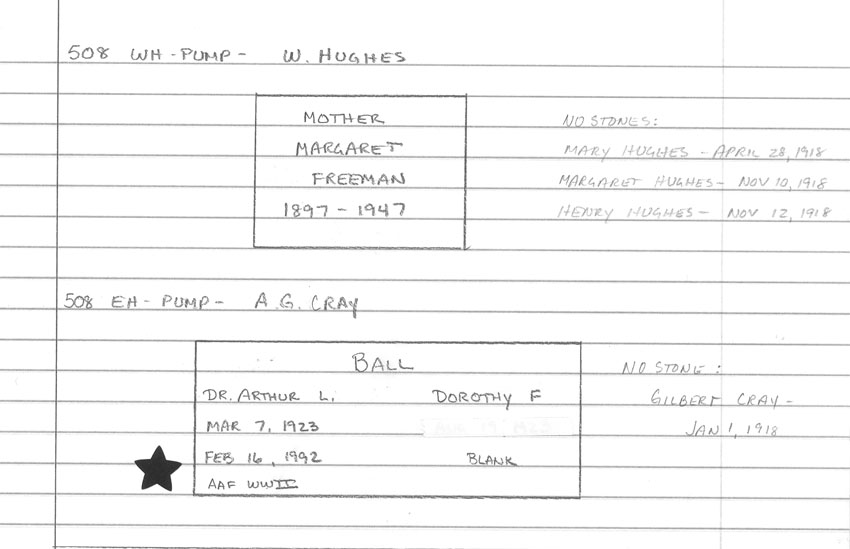 508 WH - PUMP - W. HUGHES
MOTHER
MARGARET
FREEMAN
1897 - 1947
NO STONES:
MARY HUGHES - APRIL 28, 1918
MARGARET HUGHES - NOV 10, 1918
HENRY HUGHES - NOV 12, 1918
508 EH - PUMP - A.G. CRAY
BALL
DR. ARTHUR L. DOROTHY F
MAR 7, 1923
FEB 16, 1992 BLANK
AAF WWII
NO STONE:
GILBERT CRAY -
JAN 1, 1918